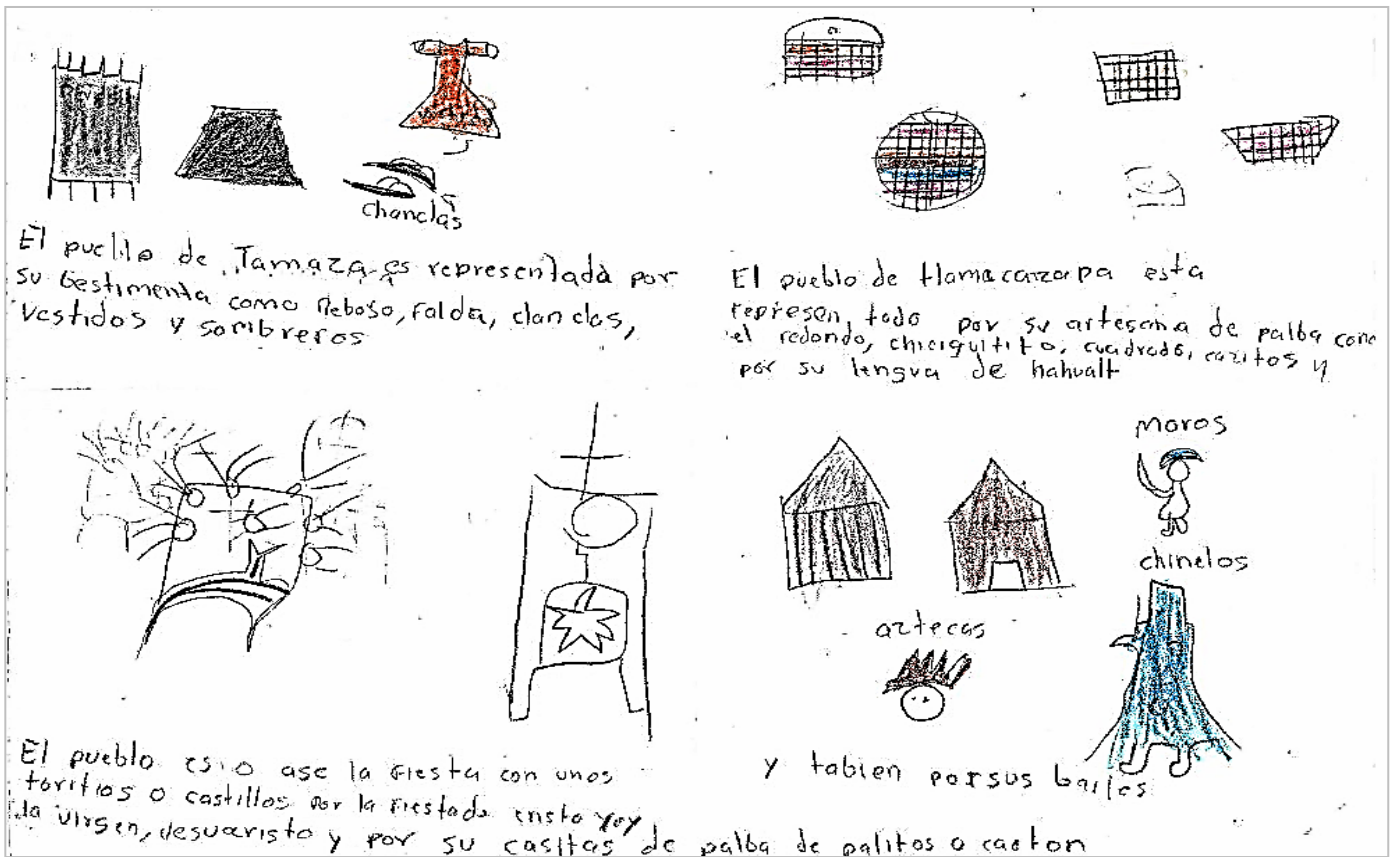 chanclas
El pueblo de Tamaza es representada por
su bestimenta como Reboso, falda, clanclas,
vestidos y sombreros
El pueblo de tlamacazapa esta
represen tado por su artesania de palba como
el redondo, chiciquitito, cuadrado, cazitos y
por su lengua de hahualt
El pueblo es o ase la fiesta con unos
toritios o castillos por la fiesta de cristo rey
la virgen, y por su casitas de palba de palitos o caeton
moros
chinelos
aztecas
y tabien por sus bailes